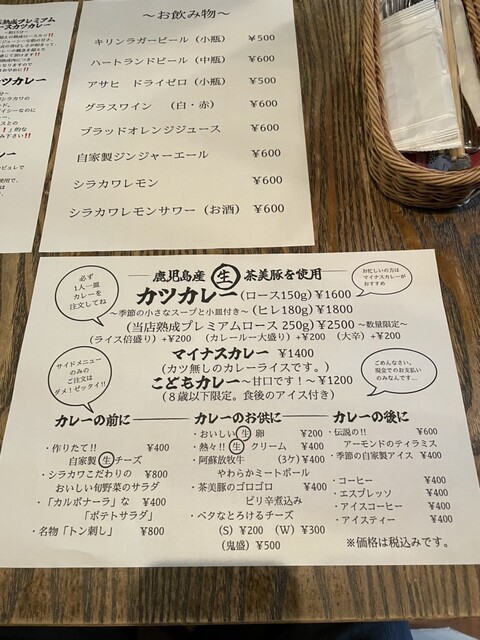 〜お飲み物〜
キリンラガービール（小瓶） ¥500
ハートランドビール（中瓶） ¥600
アサヒ ドライゼロ（小瓶） ¥500
グラスワイン （白・赤） ¥600
ブラッドオレンジジュース ¥600
自家製ジンジャーエール ¥600
シラカワレモン ¥600
シラカワレモンサワー（お酒） ¥600
必ず
1人一皿
カレーを
注文してね
鹿児島産 生 茶美豚を使用
お忙しいの方は
マイナスカレーが
おすすめ
カツカレー(ロース150g) ¥1600
〜季節の小さなスープと小皿付き〜 (ヒレ180g) ¥1800
(当店熟成プレミアムロース 250g) ¥2500 〜数量限定〜
(ライス倍盛り) +¥200 (カレールー大盛り) +¥200 (大辛) +¥200
マイナスカレー ¥1400
(カツ無しのカレーライスです。)
こどもカレー〜甘口です！〜 ¥1200
(８歳以下限定。食後のアイス付き)
サイドメニュー
のみの
ご注文は
ダメ！ゼッタイ!!
ごめんなさい。
現金でのお支払い
のみなんです…
カレーの前に
・作りたて!! ¥400
自家製 生 チーズ
・シラカワこだわりの ¥800
おいしい旬野菜のサラダ
・「カルボナーラ」な ¥400
「ポテトサラダ」
・名物「トン刺し」 ¥800
カレーのお供に
・おいしい 生 卵 ¥200
・熱々!! 生 クリーム ¥400
・阿蘇放牧牛 (3ケ) ¥400
やわらかミートボール
・茶美豚のゴロゴロ ¥400
ピリ辛煮込み
・ベタなとろけるチーズ
(S) ¥200 (W) ¥300
(鬼盛) ¥500
カレーの後に
・伝説の!! ¥600
アーモンドのティラミス
・季節の自家製アイス ¥400
・コーヒー ¥400
・エスプレッソ ¥400
・アイスコーヒー ¥400
・アイスティー ¥400
※価格は税込みです。